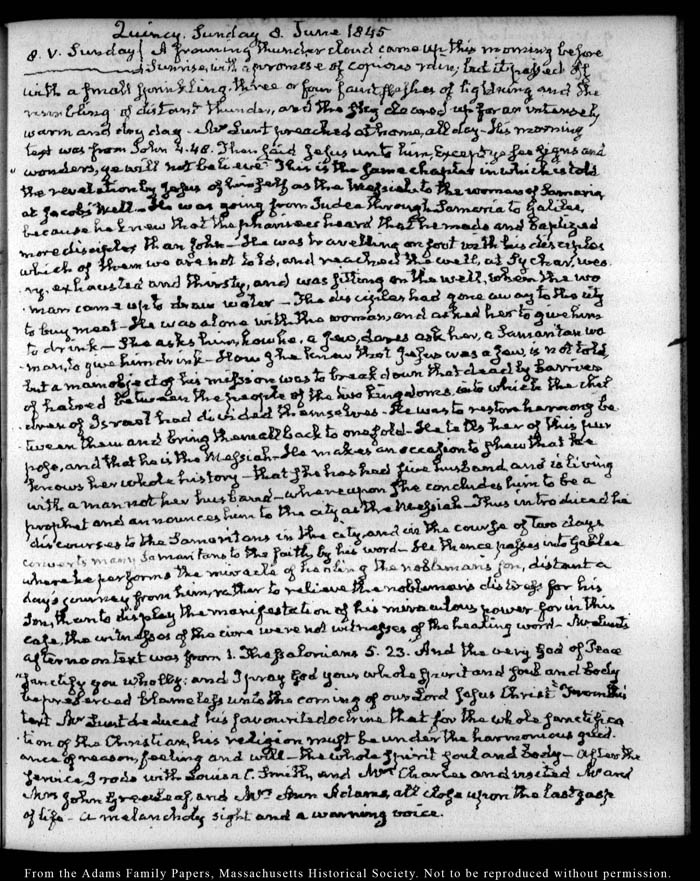 Quincy, Sunday 8. June 1845
8. V. Sunday { A frowning thunder cloud came up this morning before
Sunrise, with a promise of copious rain; but it passed off
with a small sprinkling, three or four faint flashes of lightning and the
rumbling of distant thunder, and the sky cleared up for an intensely
warm and dry day - Mr Lunt preached at home, all day - His morning
text was from John 4.48. Then said Jesus unto him, Except ye see signs and
" wonders, ye will not believe." This is the same chapter in which is told
the revelation by Jesus of himself as the Messiah to the woman of Samaria,
at Jacob's Well - He was going from Judea through Samaria to Galilee,
because he knew that the pharisees heard that he made and baptized
more disciples than John - He was travelling on foot with his disciples
which of them we are not told, and reached the well, at Sychar, wea
ry, exhausted and thirsty, and was sitting on the well, when the wo
man came up to draw water - The disciples had gone away to the city
to buy meat - He was alone with the woman, and asked her to give him
to drink - She asks him, how he, a Jew, dares ask her, a Samaritan wo
man, to give him drink - How she knew that Jesus was a Jew, is not told,
but a main object of his mission was to break down that deadly barrier
of hatred between the people of the two kingdoms, into which the chil
dren of Israel had divided themselves - He was to restore harmony be
tween them and bring them all back to one fold - He tells her of this pur
pose, and that he is the Messiah - He makes an occasion to shew that he
knows her whole history - that she has had five husband and is living
with a man not her husband - whereupon she concludes him to be a
prophet and announces him to the city as the Messiah - Thus introduced he
discourses to the Samaritans in the city, and in the course of two days
converts many Samaritans to the faith, by his word - He thence passes into Galilee
where he performs the miracle of healing the nobleman's son, distant a
day's journey from him, rather to relieve the nobleman's distress for his
Son, than to display the manifestation of his miraculous power for in this
case, the witnesses of the cure were not witnesses of the healing word - Mr Lunt's
afternoon text was from 1. Thessalonians 5. 23. And the very God of Peace
" sanctify you wholly: and I pray God your whole spirit and soul and body
be preserved blameless unto the coming of our Lord Jesus Christ" From this
text Mr Lunt deduced his favourite doctrine that for the whole sanctifica
tion of the Christian, his religion must be under the harmonious guid
ance of reason, feeling and will - the whole spirit soul and body - After the
service, I rode with Louisa C. Smith, and Mrs Charles and visited Mr and
Mrs John Greenleaf, and Mrs Ann Adams, all close upon the last gasp
of life - a melancholy sight and a warning voice.
From the Adams Family Papers, Massachusetts Historical Society. Not to be reproduced without permission.